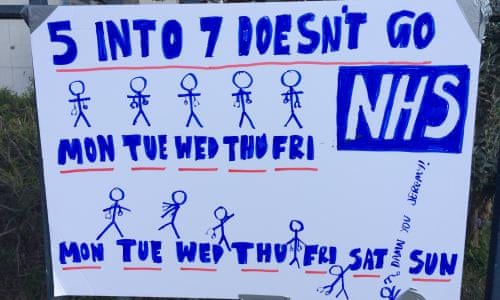 5 INTO 7 DOESN'T GO
NHS
MON TUE WED THU FRI
MON TUE WED THU FRI SAT SUN
DAMN YOU JEREMY!